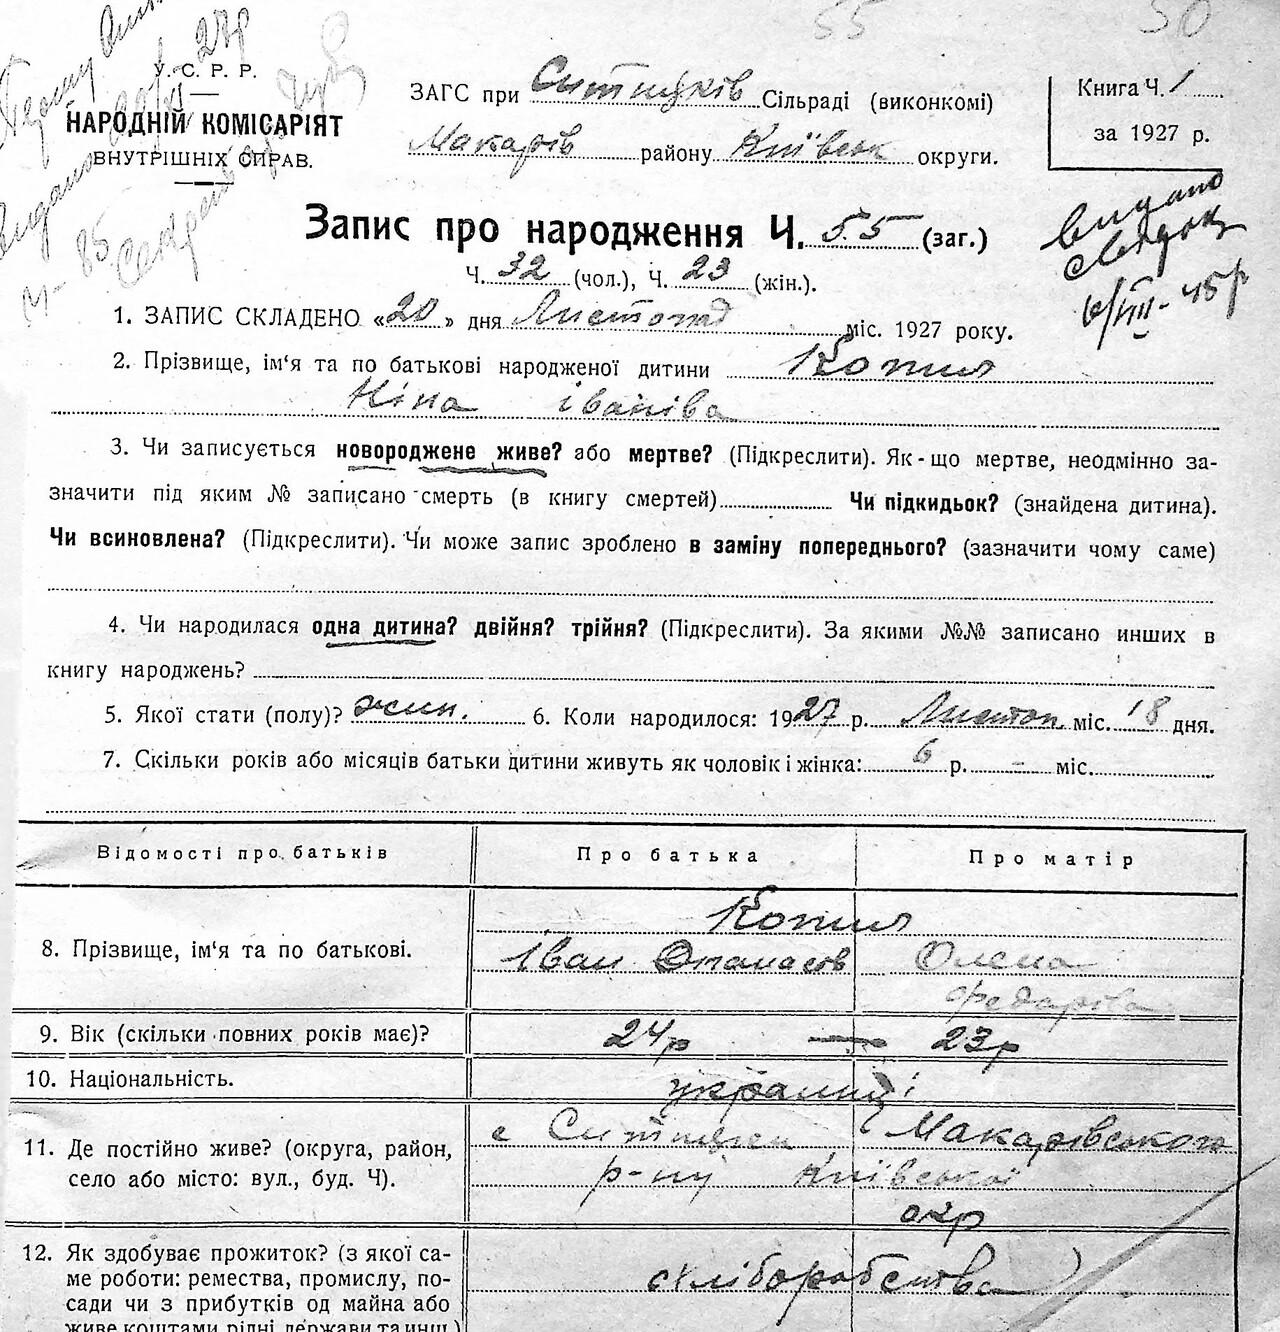 55
50
У. С. Р. Р.
НАРОДНІЙ КОМІСАРІЯТ
ВНУТРІШНІХ СПРАВ.
ЗАГС при Ситняків Сільраді (виконкомі)
Макарів району Київськ округи.
Книга Ч. 1
за 1927 р.
Запис про народження Ч. 55 (заг.)
Ч. 32 (чол.), Ч. 23 (жін.).
видано
6/VIII-45р
1. ЗАПИС СКЛАДЕНО «20» дня Листопад міс. 1927 року.
2. Прізвище, ім‘я та по батькові народженої дитини Копил
Ніна Іванівa
3. Чи записується новороджене живе? або мертве? (Підкреслити). Як-що мертве, неодмінно за-
значити під яким № записано смерть (в книгу смертей) Чи підкидьок? (знайдена дитина).
Чи всиновлена? (Підкреслити). Чи може запис зроблено в заміну попереднього? (зазначити чому саме)
4. Чи народилася одна дитина? двійня? трійня? (Підкреслити). За якими №№ записано инших в
книгу народжень?
5. Якої стати (полу)? жин. 6. Коли народилося: 1927 р. Листоп. міс. 18 дня.
7. Скільки років або місяців батьки дитини живуть як чоловік і жінка: 6 р. - міс.
Відомості про батьків Про батька Про матір
Копил
8. Прізвище, ім‘я та по батькові. Іван Опанасів Олена
Федорівa
9. Вік (скільки повних років має)? 24р — 23р
10. Національність. українці
11. Де постійно живе? (округа, район, с Ситняки Макарівського
село або місто: вул., буд. Ч). р-ну Київської
окр
12. Як здобуває прожиток? (з якої са-
ме роботи: ремества, промислу, по- хліборобства
сади чи з прибутків од майна або
живе коштами рідні держави та инш.)